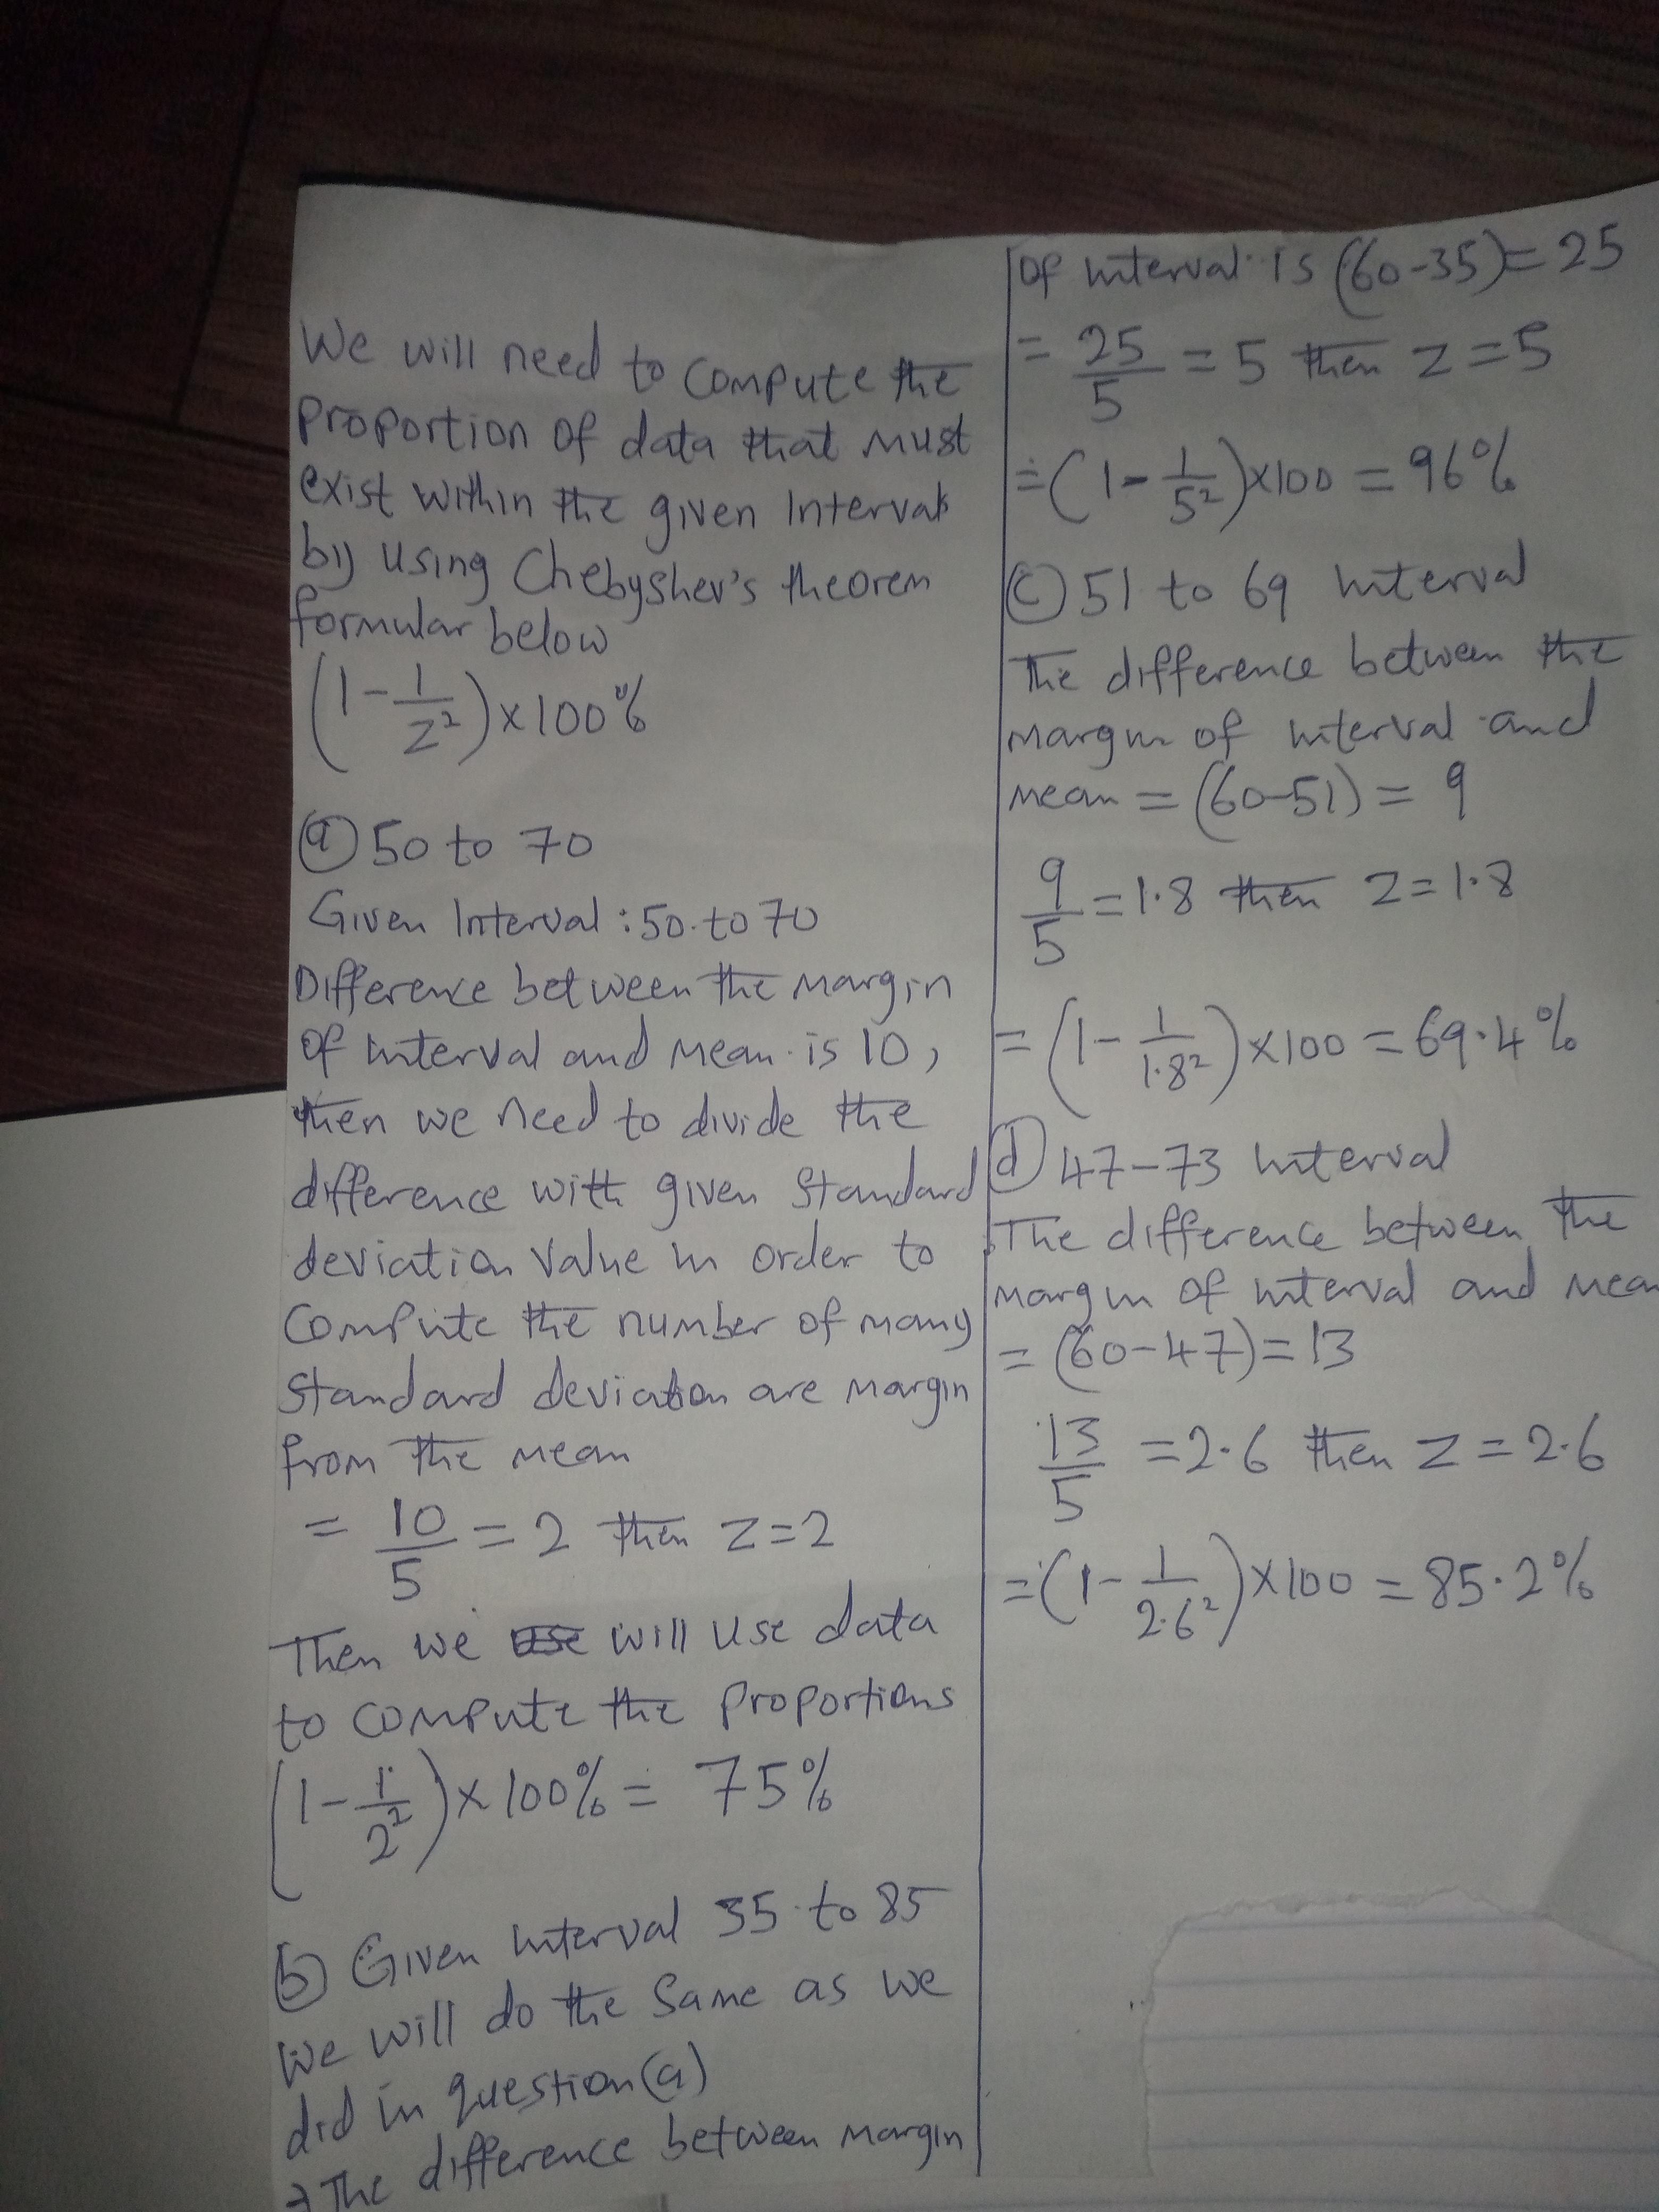 We will need to compute the
proportion of data that must
exist within the given Intervals
by using Chebyshev's theorem
formular below
(1 - 1/z²) x 100%
(a) 50 to 70
Given Interval : 50 to 70
Difference between the margin
of interval and mean is 10,
then we need to divide the
difference with given standard
deviation value in order to
compute the number of many
standard deviation are margin
from the mean
= 10/5 = 2 then z = 2
Then we will use data
to compute the proportions
(1 - 1/2²) x 100% = 75%
(b) Given interval 35 to 85
We will do the same as we
did in question (a)
The difference between margin
of interval is (60-35) = 25
= 25/5 = 5 then z = 5
= (1 - 1/5²) x 100 = 96%
(c) 51 to 69 interval
The difference between the
margin of interval and
mean = (60-51) = 9
9/5 = 1.8 then z = 1.8
= (1 - 1/1.8²) x 100 = 69.4%
(d) 47-73 interval
The difference between the
margin of interval and mean
= (60-47) = 13
13/5 = 2.6 then z = 2.6
= (1 - 1/2.6²) x 100 = 85.2%